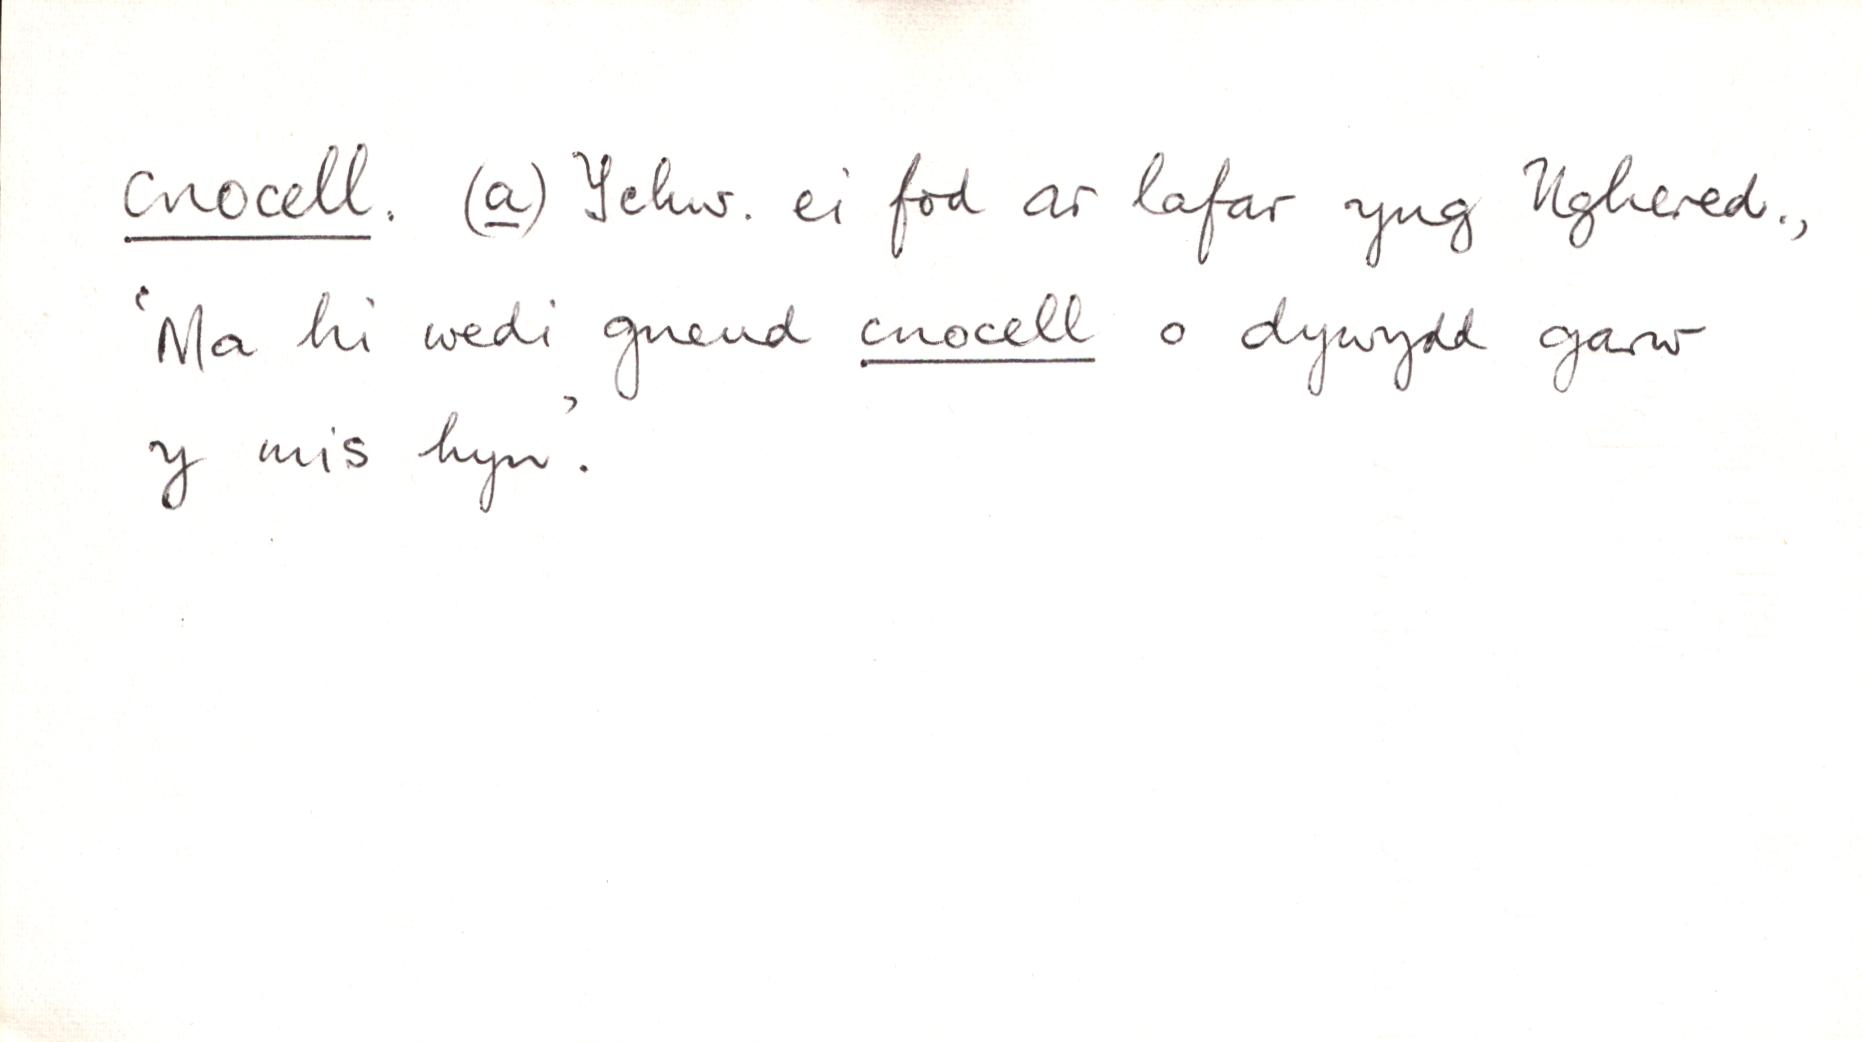 cnocell. (a) Ychw. ei fod ar lafar yng Nghered.,
‘Ma hi wedi gneud cnocell o dywydd garw
y mis hyn’.